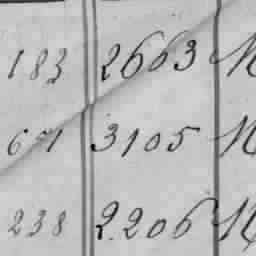 183 2663 N
671 3105 N
238 2206 N